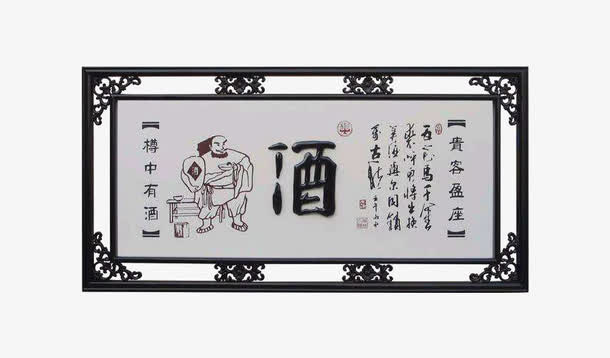 貴客盈座
五花馬千金
裘呼兒將出換
美酒與爾同銷
萬古愁
酒
酒
樽中有酒